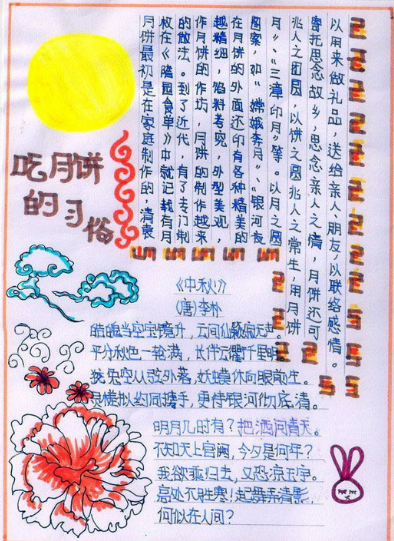 吃月饼
的习俗
月饼最初是在家庭制作的,清袁
枚在《随园食单》中就记载有月
的做法。到了近代,有了专门制
作月饼的作坊,月饼的制作越来
越精细,馅料考究,外型美观,
在月饼的外面还印有各种精美的
图案,如《嫦娥奔月》、《银河夜
月》、《三潭印月》等。以月之圆
兆人之团圆,以饼之圆兆人之常生,用月饼
寄托思念故乡,思念亲人之情,月饼还可
以用来做礼品,送给亲人、朋友以联络感情。
《中秋》
(唐)李朴
皓魄当空宝镜升,云间仙籁寂无声。
平分秋色一轮满,长伴云衢千里明。
狡兔空从弦外落,妖蟆休向眼前生。
灵槎拟约同携手,更待银河彻底清。
明月几时有?把酒问青天。
不知天上宫阙,今夕是何年?
我欲乘归去,又恐凉玉宇。
高处不胜寒!起舞弄清影,
何似在人间?